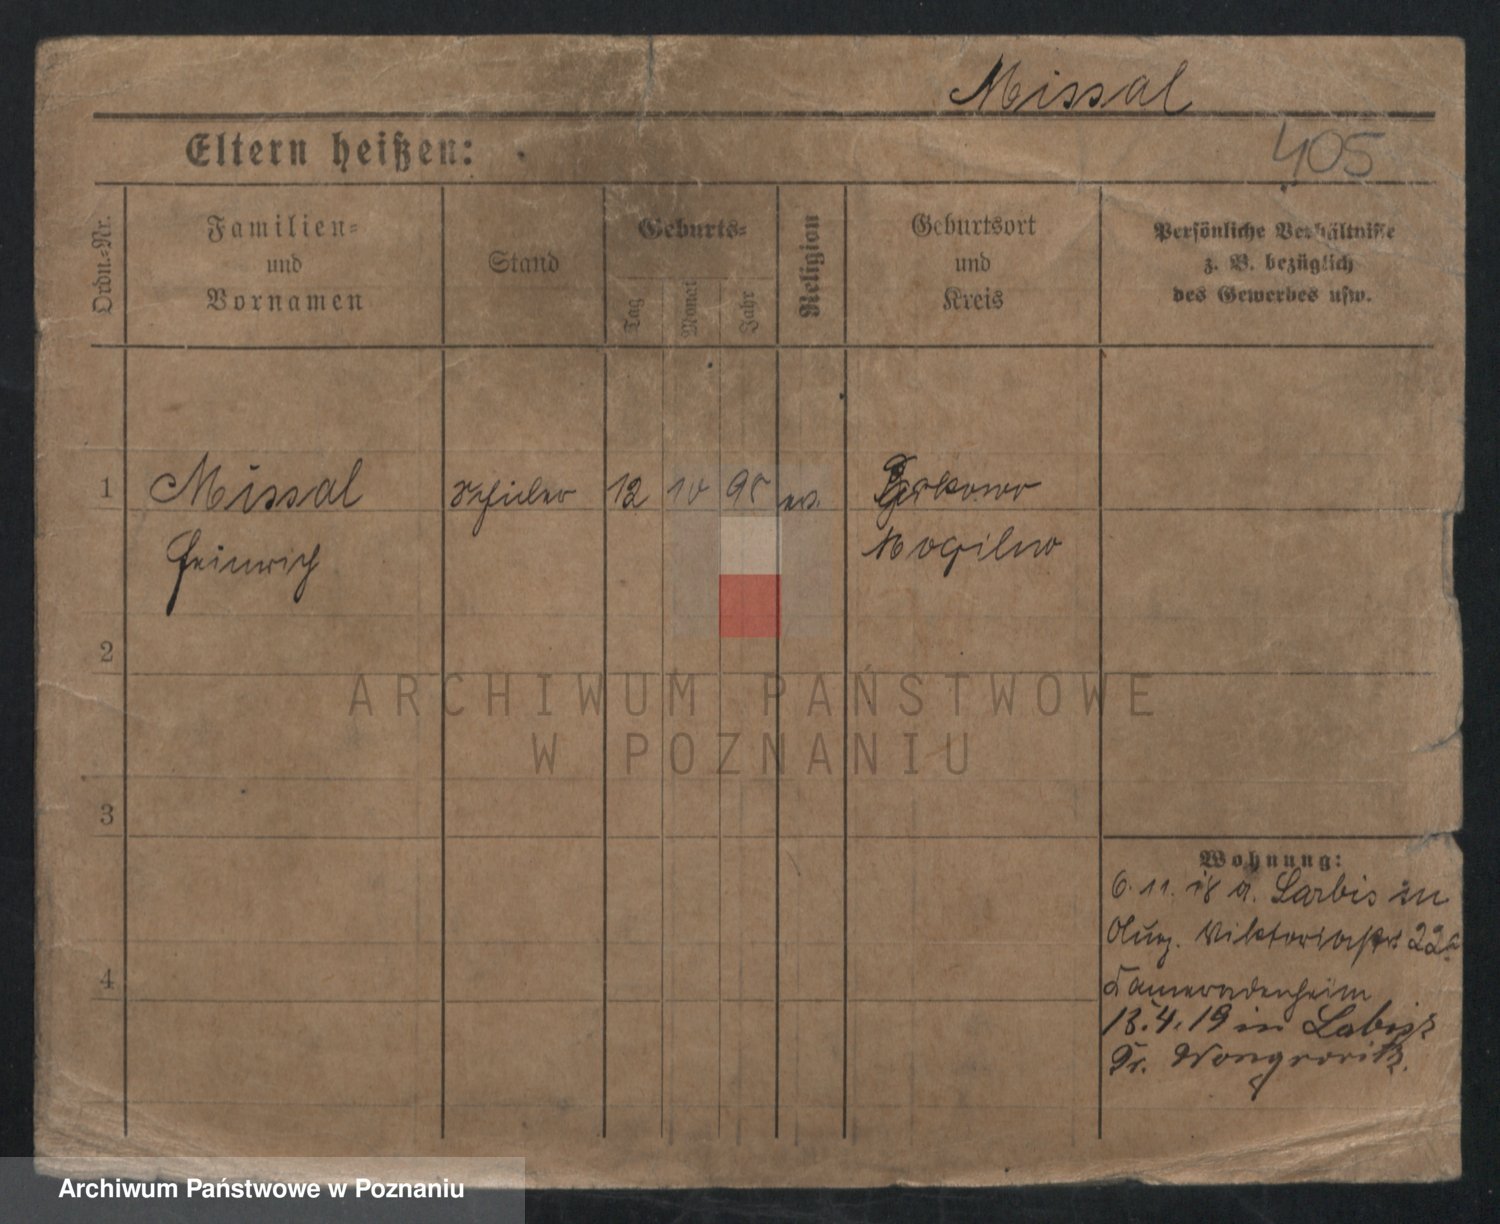 Missal
405
Eltern heißen:
Ordn.-Nr.
Familien-
und
Vornamen
Stand
Geburts-
Tag
Monat
Jahr
Religion
Geburtsort
und
Kreis
Persönliche Verhältnisse
z. B. bezüglich
des Gewerbes usw.
1 Missal Schüler 12 10 95 ev.
Heinrich Mogilno
2
ARCHIWUM PAŃSTWOWE
W POZNANIU
3
4
Wohnung:
6. 11. 18 a. Larbis in
Viktoriastr 22
Kameradenheim
13. 4. 19 in
Kr. Wongrowitz.
Archiwum Państwowe w Poznaniu